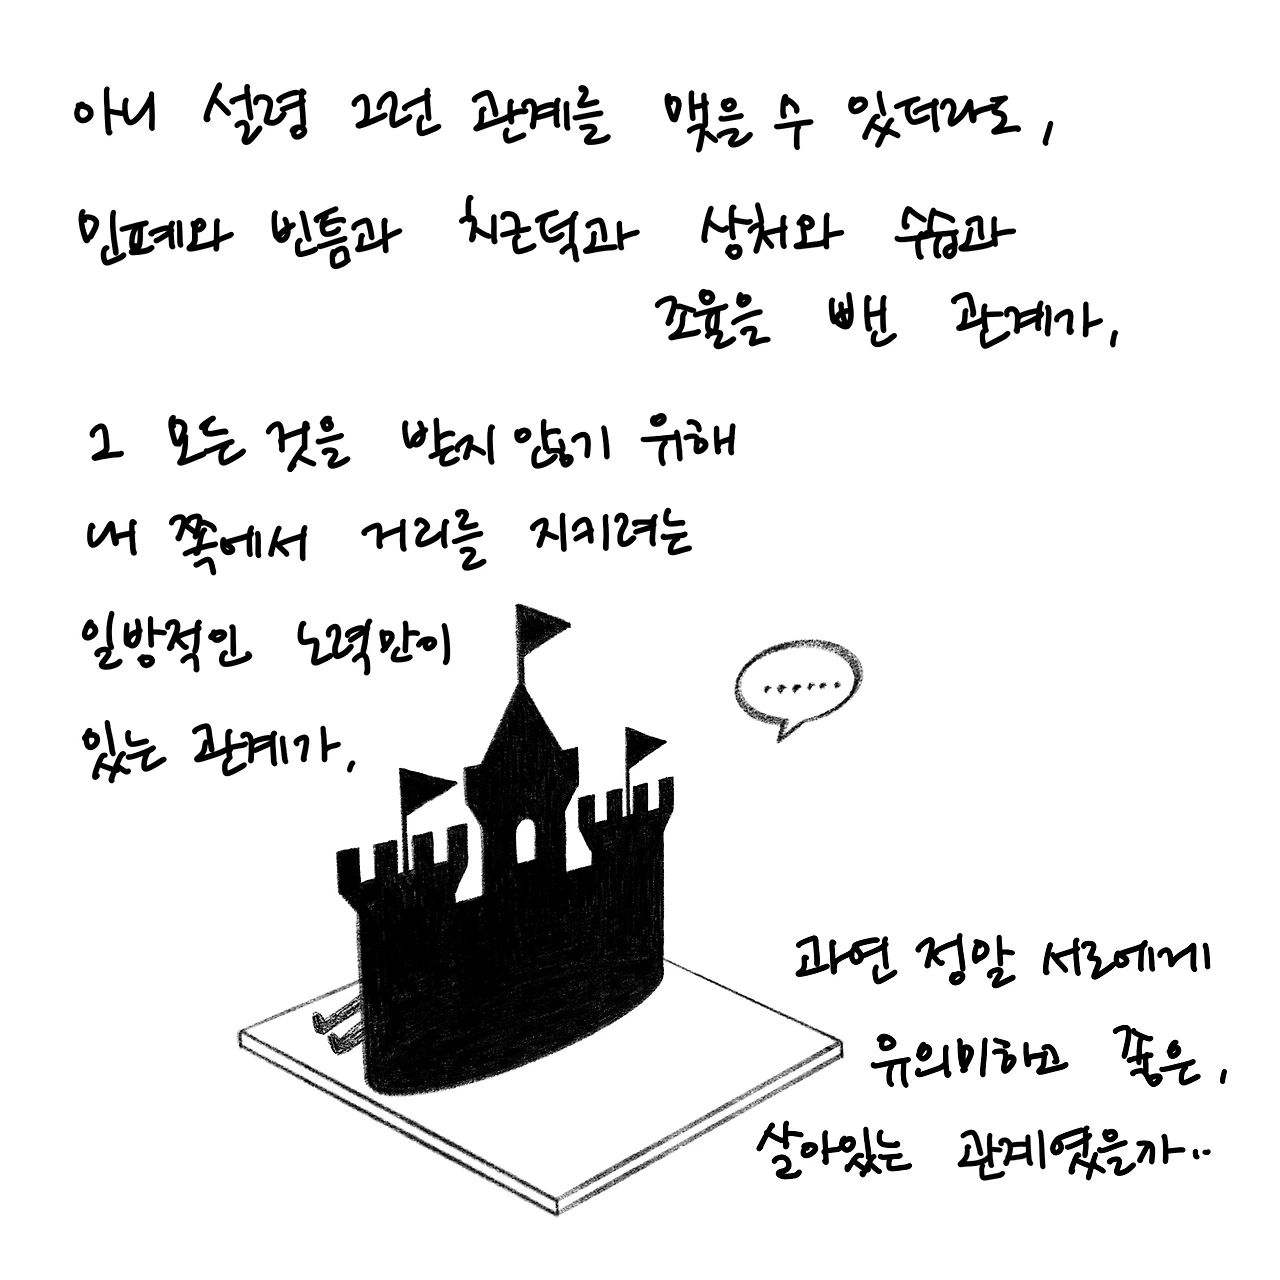 아니 설령 그런 관계를 맺을 수 있더라도,
민폐와 빈틈과 치근덕과 상처와 수습과
조율을 뺀 관계가,
그 모든 것을 받지 않기 위해
내 쪽에서 거리를 지키려는
일방적인 노력만이
있는 관계가,
......
과연 정말 서로에게
유의미하고 좋은,
살아있는 관계였을까..